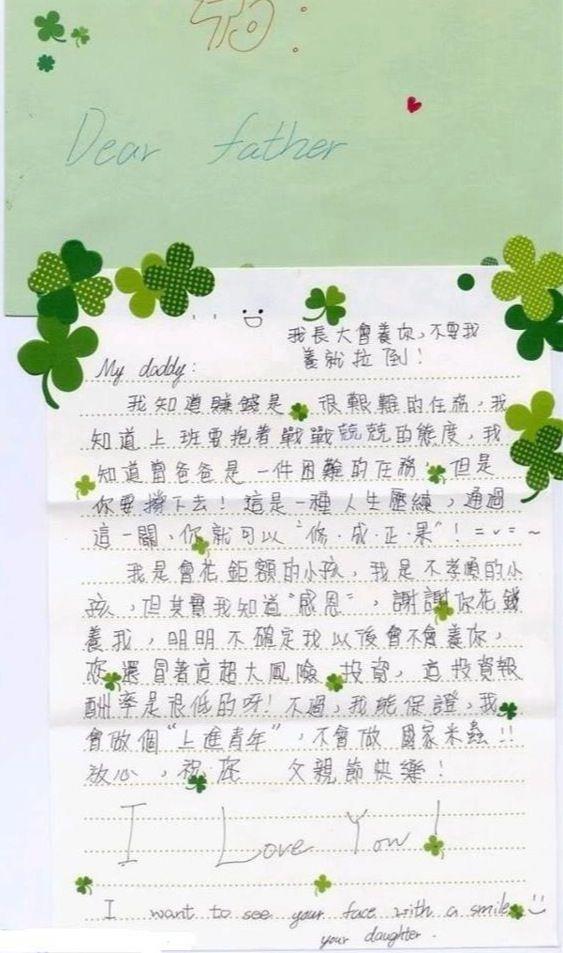 Dear father
我長大會養你，不要我
養就拉倒！
My daddy:
我知道賺錢是很艱難的任務，我
知道上班要抱著戰戰兢兢的態度，我
知道當爸爸是一件困難的任務，但是
你要撐下去！這是一種人生歷練，通過
這一關，你就可以"修．成．正．果"！=v=~
我是會花鉅額的小孩，我是不孝順的小
孩，但其實我知道"感恩"，謝謝你花錢
養我，明明不確定我以後會不會養你，
你還冒著這超大風險投資，這投資報
酬率是很低的呀！不過，我能保證，我
會做個"上進青年"，不會做國家米蟲!!
放心，祝 父親節快樂！
I Love You!
I want to see your face with a smile
your daughter.